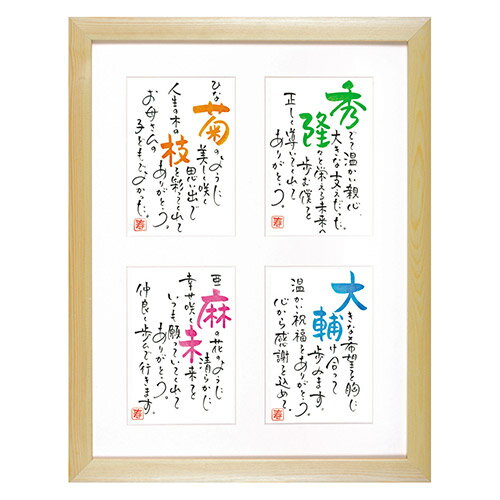 秀でて温かい親心
大きな支えだった
隆々と栄える未来へ
歩む僕を
正しく導いてくれて
ありがとう。
ひな菊のように
美しく咲く
思い出で
人生の木の枝を彩ってくれて
ありがとう。
お母さんの
子どもで、よかった。
大きな希望を胸に
輔け合って
歩みます。
温かい祝福をありがとう。
心から感謝を込めて
亜麻の花のように
清らかに
幸せ咲く未来を
いつも願っていてくれて
ありがとう。
仲良く歩んで行きます。